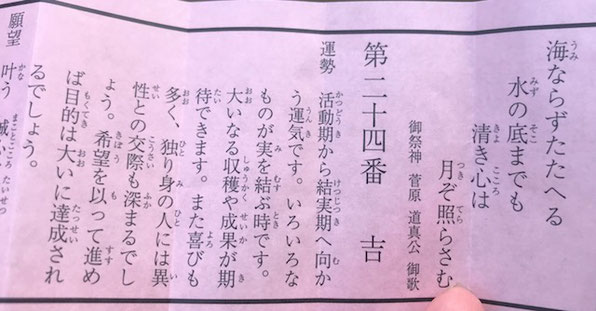 海ならずたたへる
水の底までも
清き心は
月ぞ照らさむ
御祭神 菅原道真公 御歌
第二十四番 吉
運勢 活動期から結実期へ向か
う運気です。いろいろな
ものが実を結ぶ時です。
大いなる収穫や成果が期
待できます。また喜びも
多く、独り身の人には異
性との交際も深まるでし
ょう。希望を以って進め
ば目的は大いに達成され
るでしょう。
願望 叶う 誠心